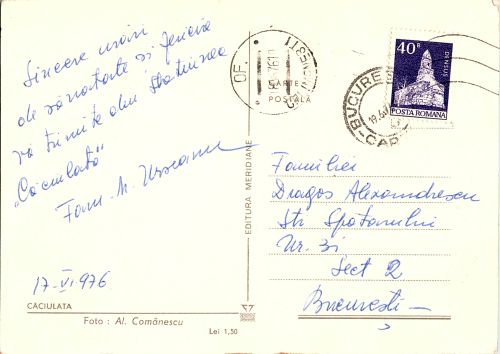 Sincere urări
de sănătate și fericire
vă trimite din stațiunea
„Căciulata"
Fam. M. Urseanu
17-VI 976
CĂCIULATA
Foto : Al. Comănescu
Lei 1,50
EDITURA MERIDIANE
CARTE
POȘTALĂ
OF.
40 B
DENSUȘ
POSTA ROMANA
BUCUREȘ
CAP
Familiei
Dragoș Alexandrescu
Str Spătarului
Nr. 31
Sect 2
București